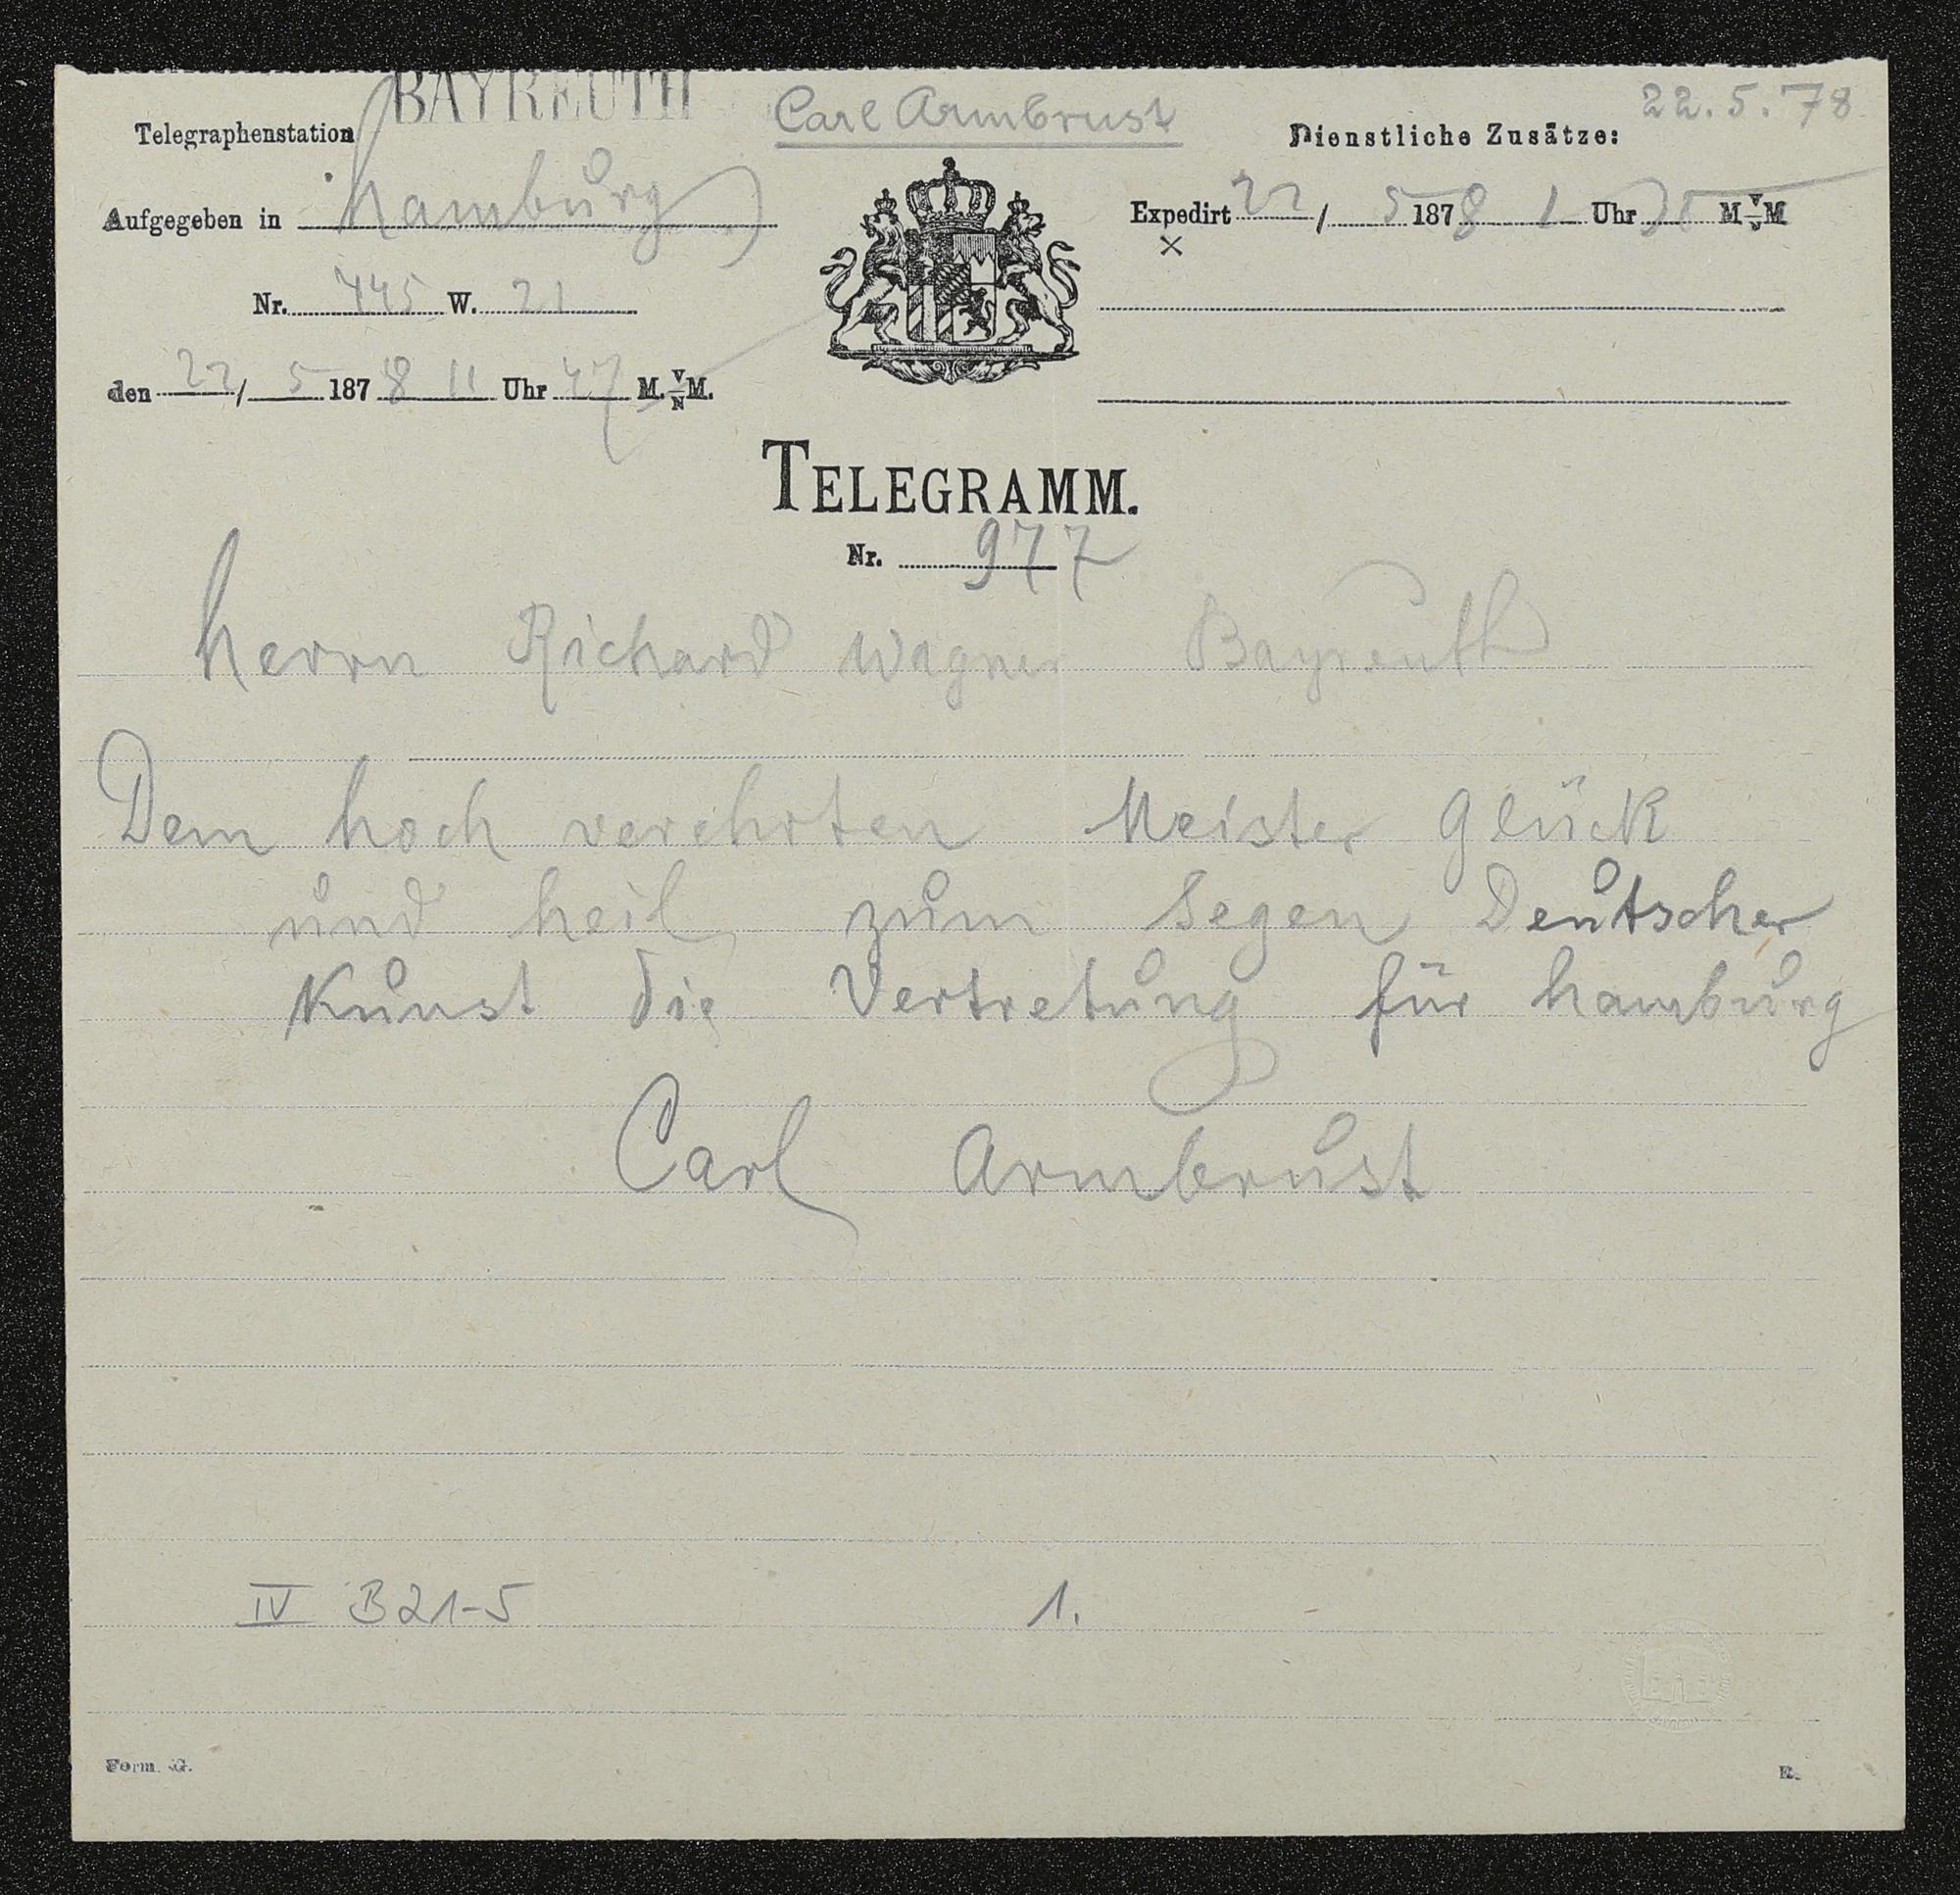 BAYREUTH
Carl Armbrust
22.5.78
Telegraphenstation
Dienstliche Zusätze:
Aufgegeben in hamburg
Expedirt 22/5 1878 1 Uhr M V/N M
Nr. 445 W. 21
den 22/5 1878 11 Uhr 47 M. V/N M.
TELEGRAMM.
Nr. 977
herrn Richard Wagner Bayreuth
Dem hoch verehrten Meister Glück
und heil zum Segen Deutscher
Kunst die Vertretung für hamburg
Carl Armbrust
IV B21-5 1.
Form. G.